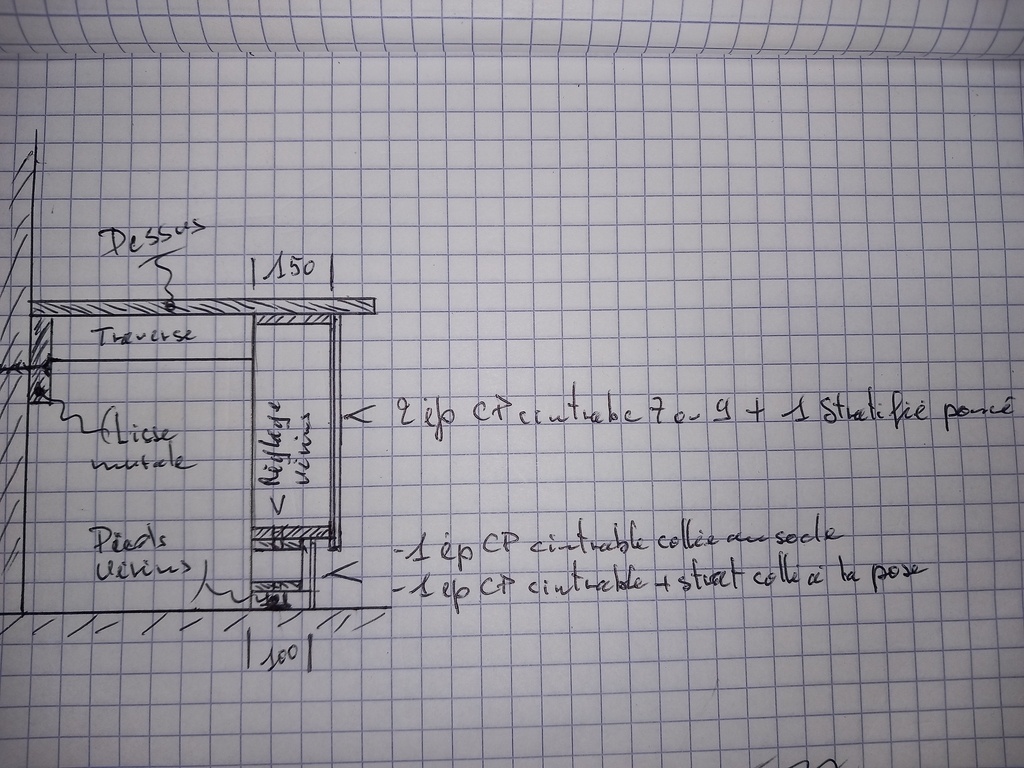 Dessus
150
Traverse
2 ép CP cintrable 7 ou 9 + 1 Stratifié poncé
Réglage
vérins
Lisse
murale
Pieds
vérins
-1 ép CP cintrable collée au socle
-1 ép CP cintrable + strat collé à la pose
100